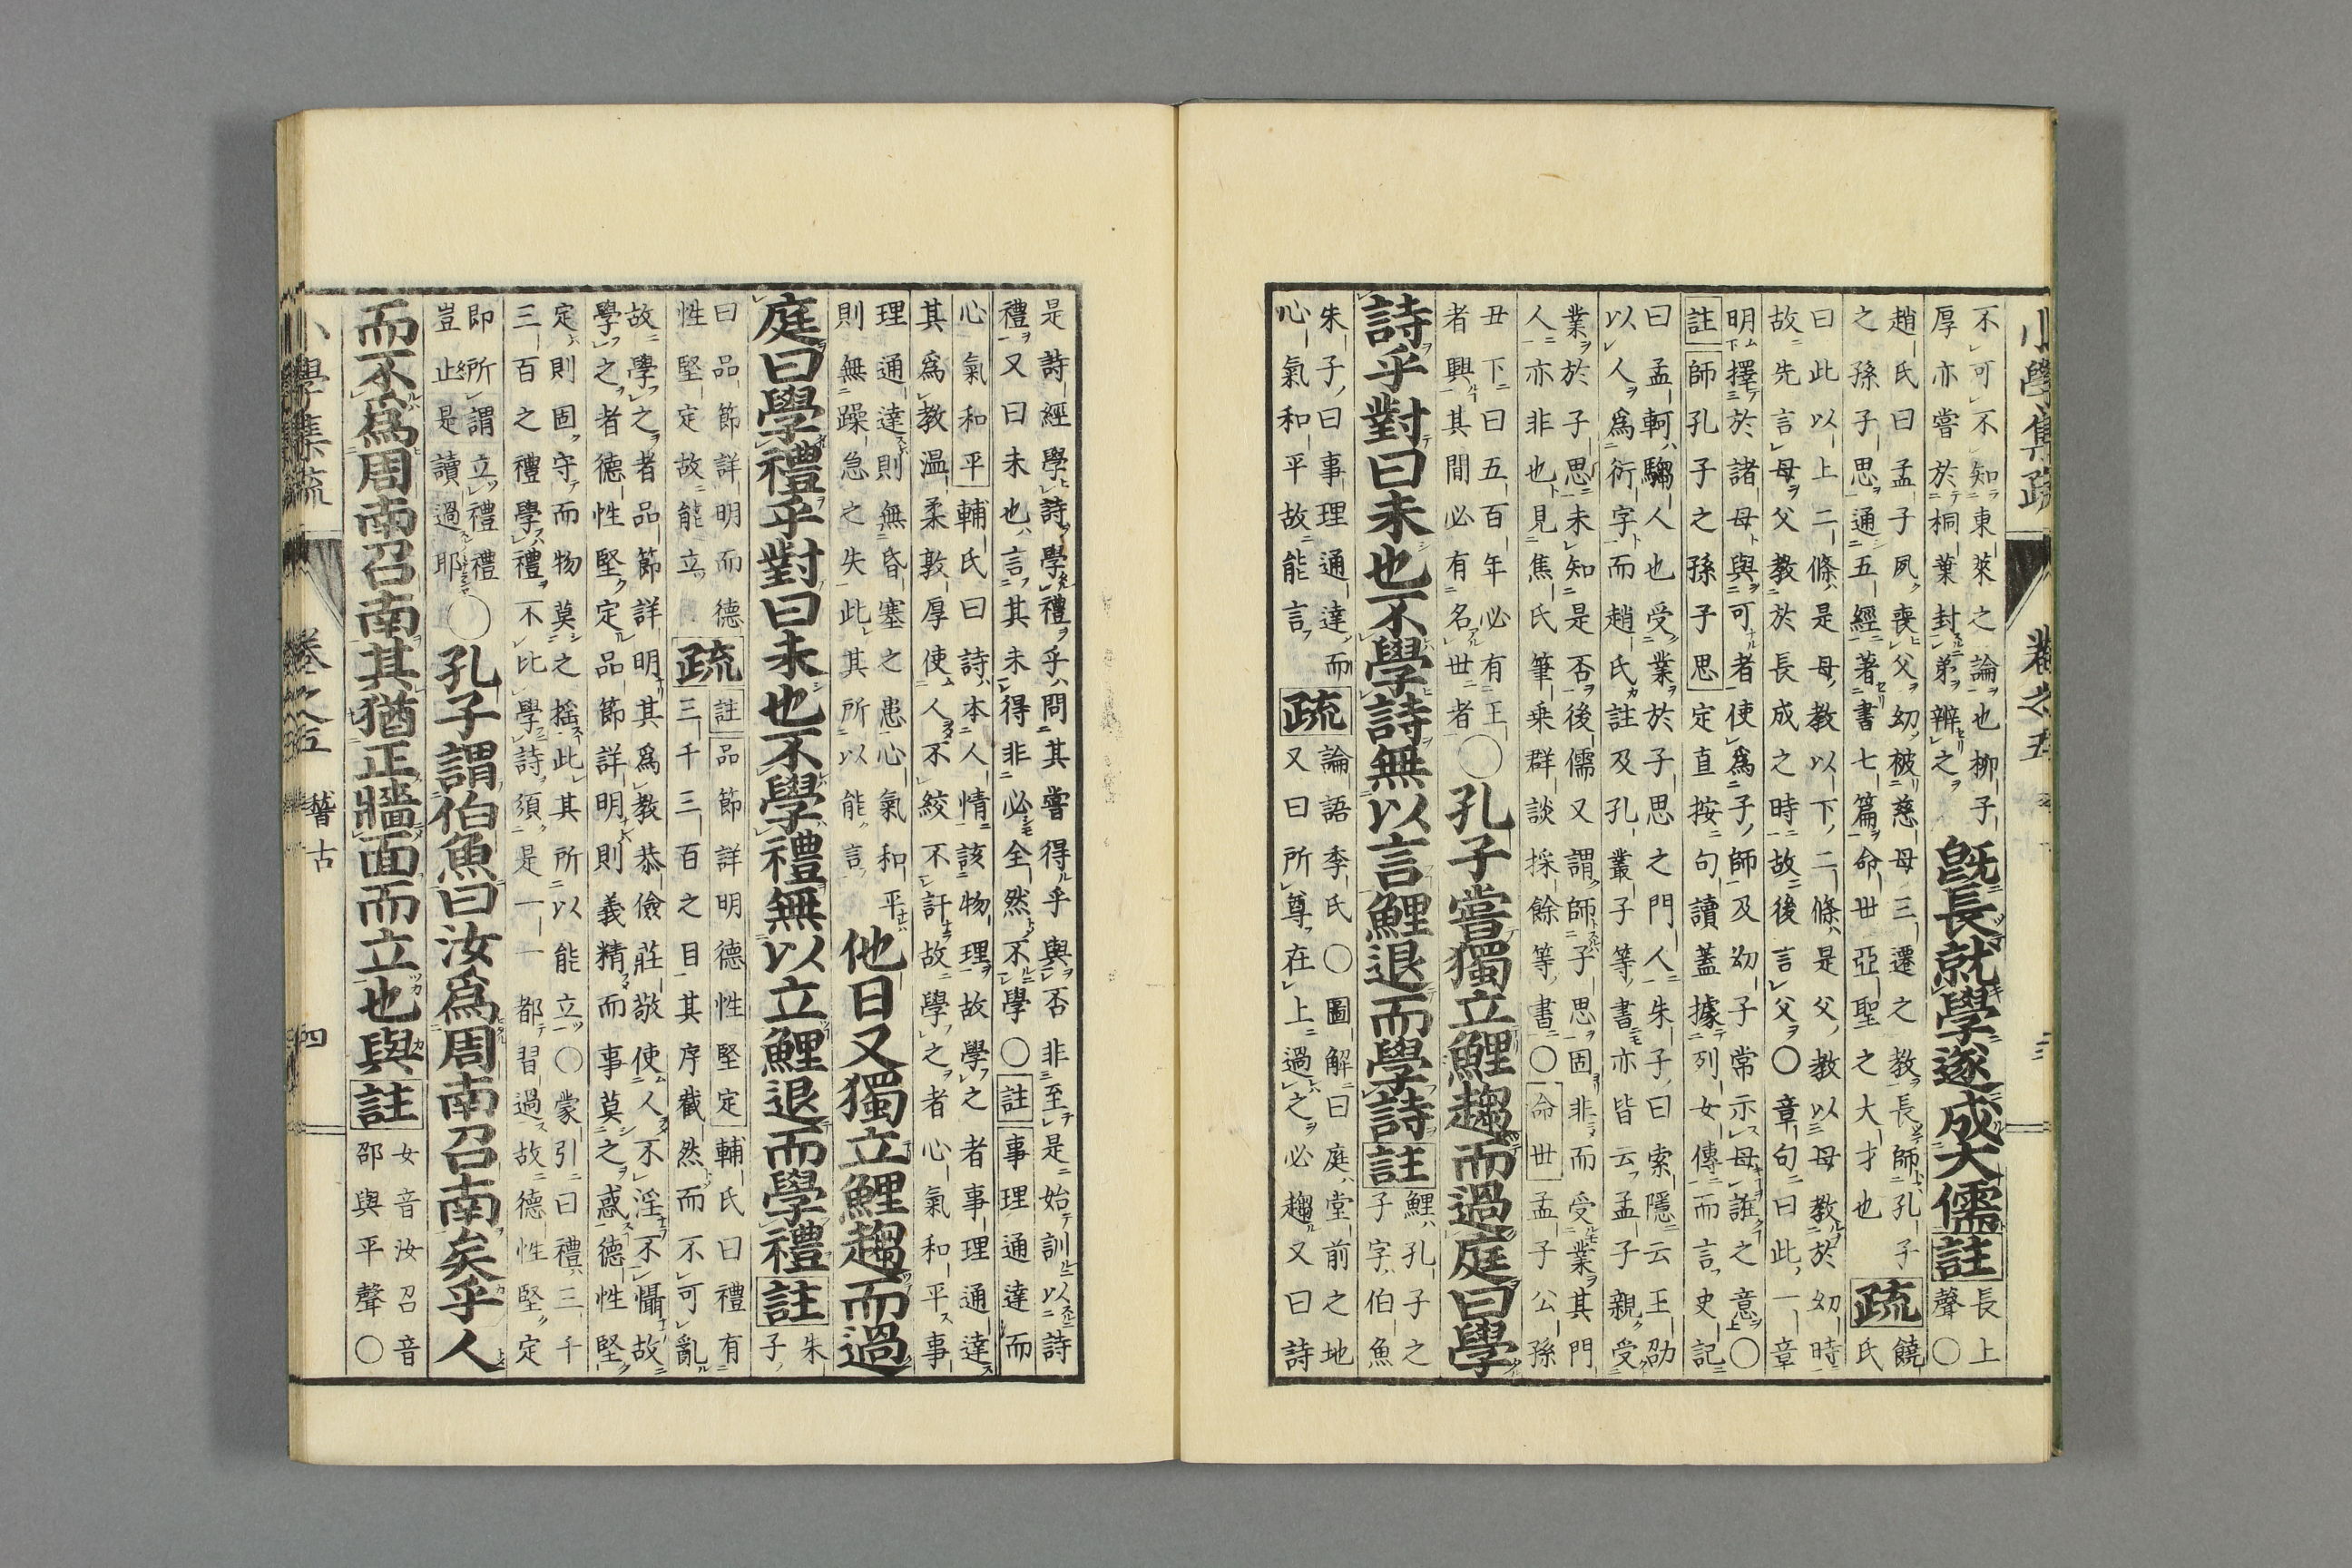 小學集疏 卷之五 三
不可不知東萊之論也柳子
厚亦嘗於桐葉封弟辨之
既長就學遂成大儒註
長上
聲○
趙氏曰孟子夙喪父幼被慈母三遷之教長師孔子
之孫子思通五經著書七篇命世亞聖之大才也
疏
饒
氏
曰此以上二條是母教以下二條是父教以母教於幼時
故先言母父教於長成之時故後言父○章句曰此一章
明擇於諸母與可者使爲子師及幼子常示母誑之意○
註師孔子之孫子思定直按句讀蓋據列女傳而言史記
曰孟軻騶人也受業於子思之門人朱子曰索隱云王劭
以人爲衍字而趙氏註及孔叢子等書亦皆云孟子親受
業於子思未知是否後儒又謂師子思固非而受業其門
人亦非也見焦氏筆乗群談採餘等書○命世孟子公孫
丑下曰五百年必有王
者興其間必有名世者
○孔子嘗獨立鯉趨而過庭曰學
詩乎對曰未也不學詩無以言鯉退而學詩註
鯉孔子之
子字伯魚
朱子曰事理通達而
心氣和平故能言
疏
論語季氏○圖解曰庭堂前之地
又曰所尊在上過之必趨又曰詩
是詩經學詩學禮乎問其嘗得乎與否非至是始訓以詩
禮又曰未也言其未得非必全然不學○註事理通達而
心氣和平輔氏曰詩本人情該物理故學之者事理通達
其爲教温柔敦厚使人不絞不訐故學之者心氣和平事
理通達則無昏塞之患心氣和平
則無躁急之失此其所以能言
他日又獨立鯉趨而過
庭曰學禮乎對曰未也不學禮無以立鯉退而學禮註
朱
子
曰品節詳明而德
性堅定故能立
疏
註品節詳明德性堅定輔氏曰禮有
三千三百之目其序截然而不可亂
故學之者品節詳明其爲教恭儉莊敬使人不淫不懾故
學之者德性堅定品節詳明則義精而事莫之惑德性堅
定則固守而物莫之搖此其所以能立○蒙引曰禮三千
三百之禮學禮不比學詩須是一一都習過故德性堅定
即所謂立禮禮
豈止是讀過耶
○孔子謂伯魚曰汝爲周南召南矣乎人
而不爲周南召南其猶正牆面而立也與註
女音汝召音
邵與平聲○
小學集疏 卷之五 稽古 四